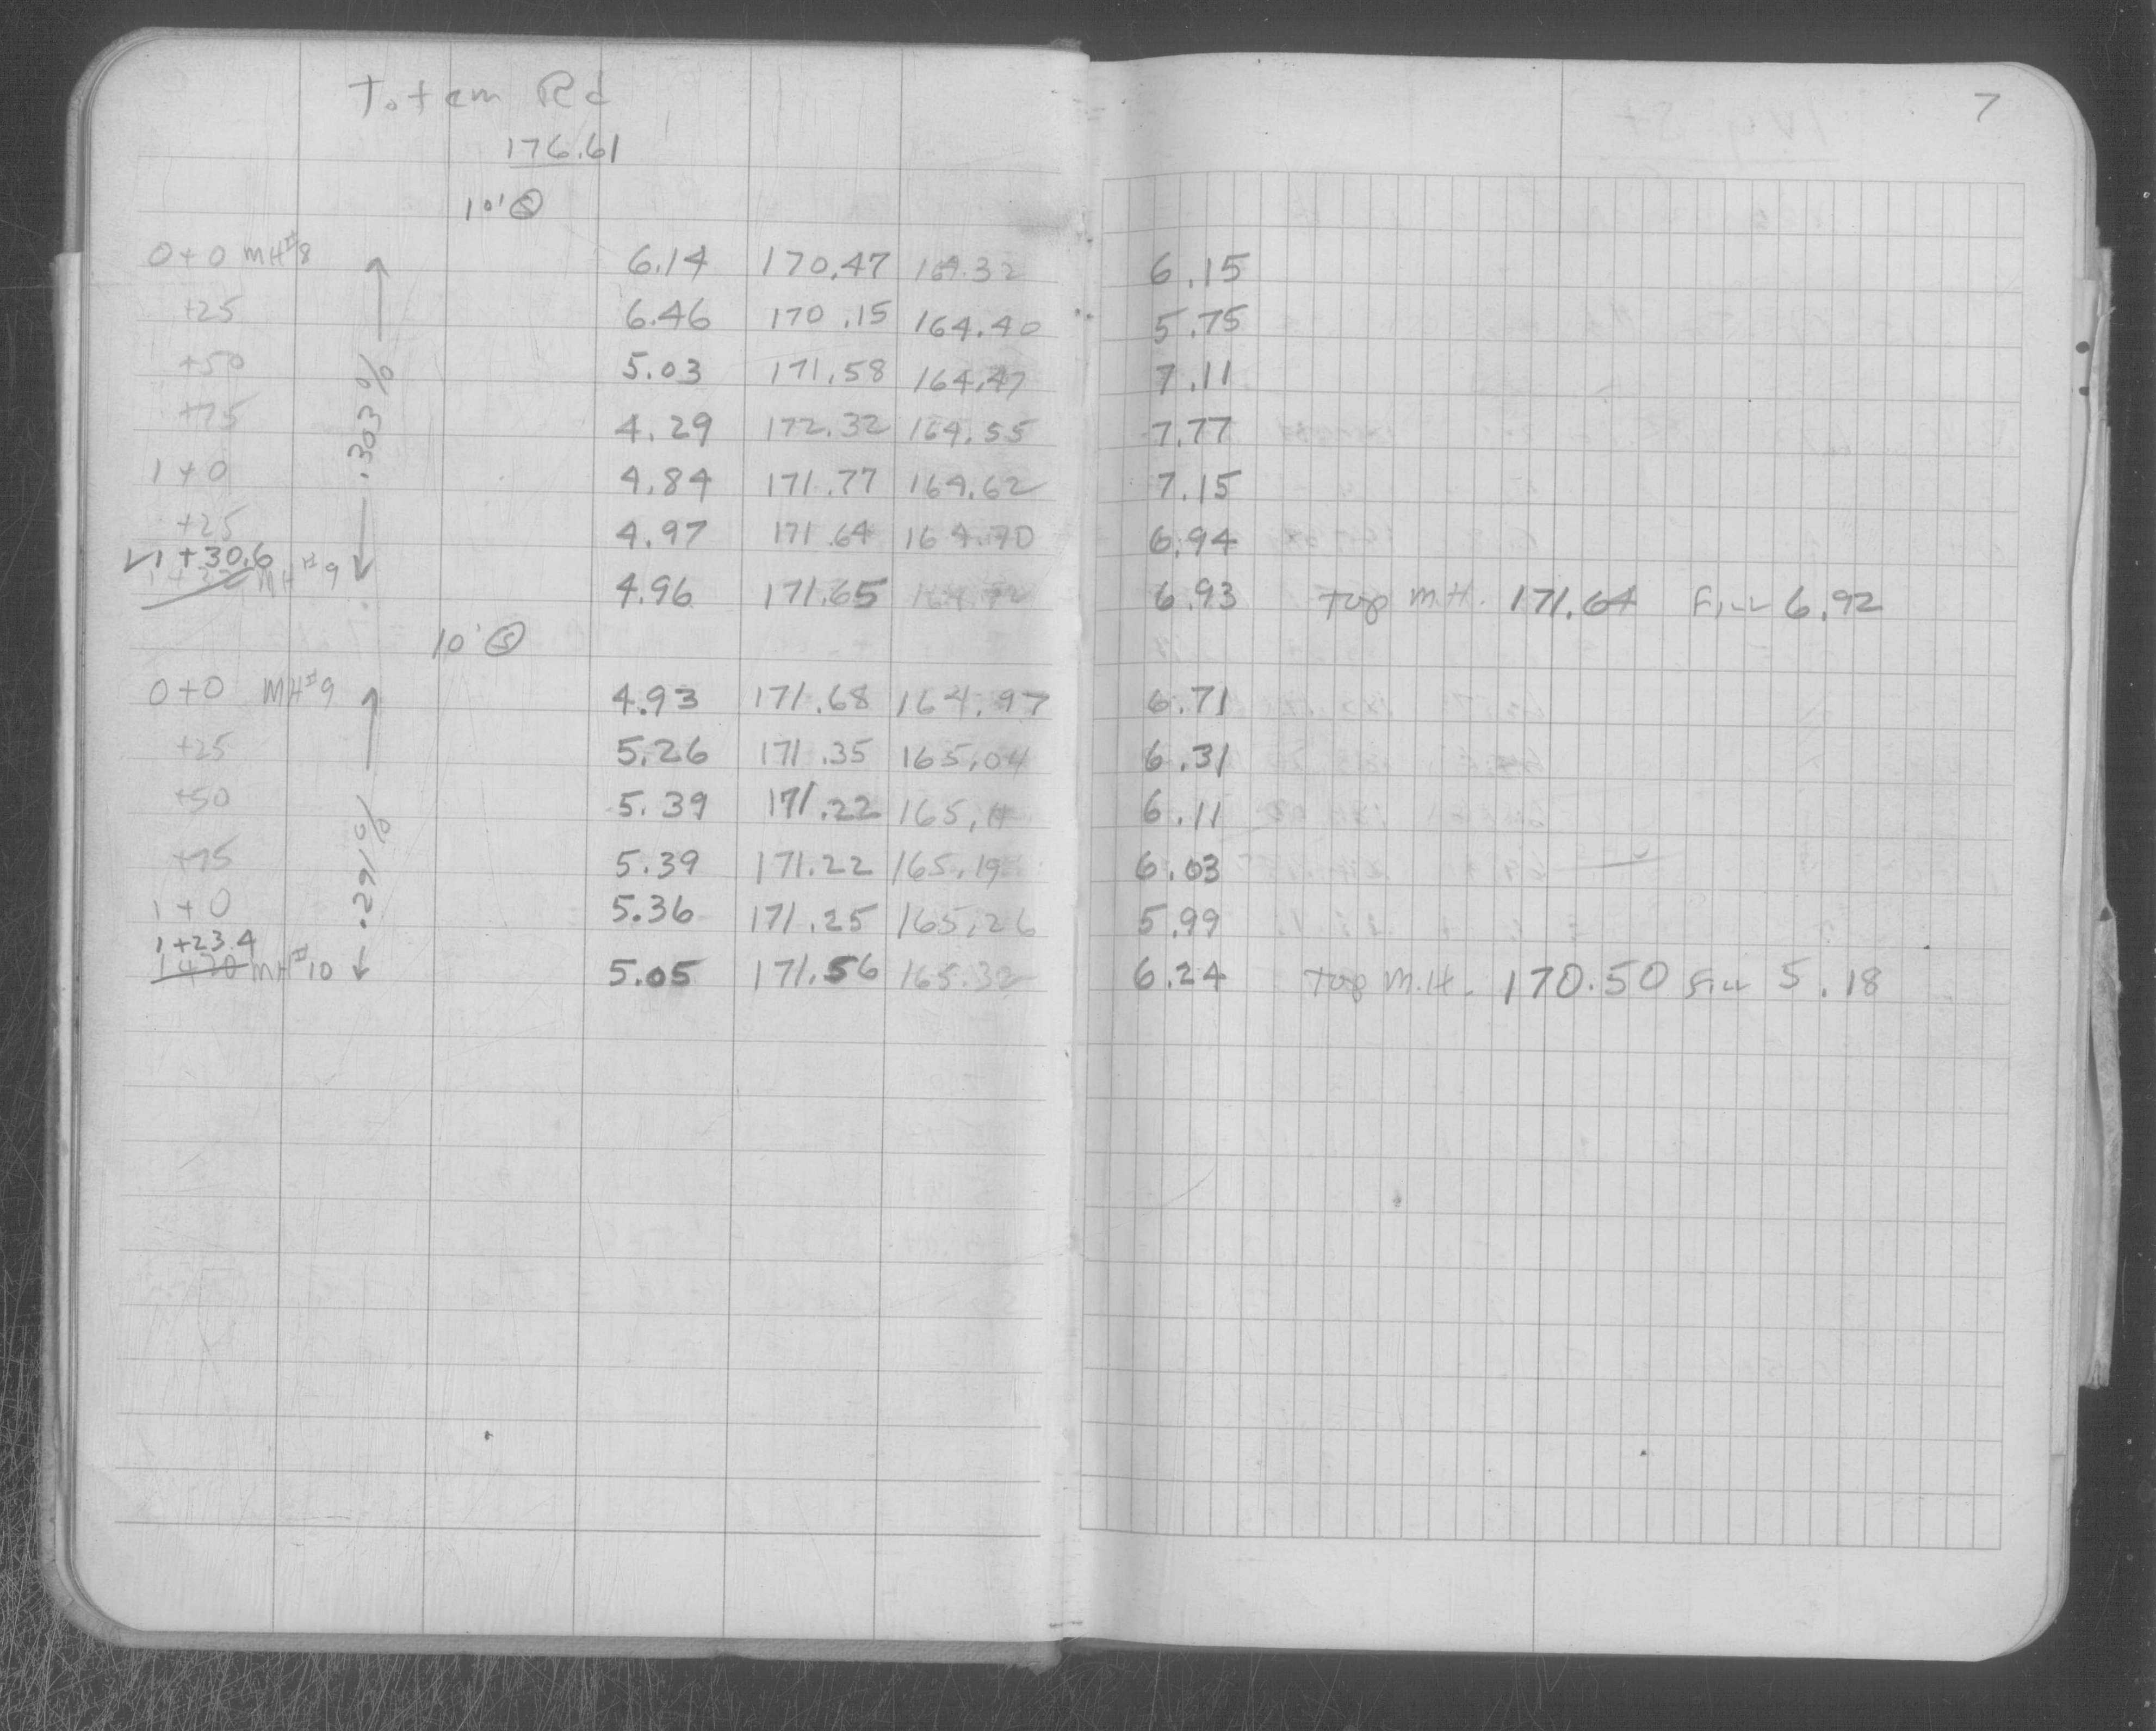 7
Totem Rd
176.61
10' Ⓢ
0+0 MH#8 6.14 170.47 164.32 6.15
+25 6.46 170.15 164.40 5.75
+50 5.03 171.58 164.47 7.11
+75 4.29 172.32 164.55 7.77
.303%
1+0 4.84 171.77 164.62 7.15
+25 4.97 171.64 164.70 6.94
✓1+30.6
MH#9 4.96 171.65 164.72 6.93 Top M.H. 171.64 Fill 6.92
10' Ⓢ
0+0 MH#9 4.93 171.68 164.97 6.71
+25 5.26 171.35 165.04 6.31
+50 5.39 171.22 165.11 6.11
.291%
+75 5.39 171.22 165.19 6.03
1+0 5.36 171.25 165.26 5.99
1+23.4
MH#10 5.05 171.56 165.32 6.24 Top M.H. 170.50 Fill 5.18